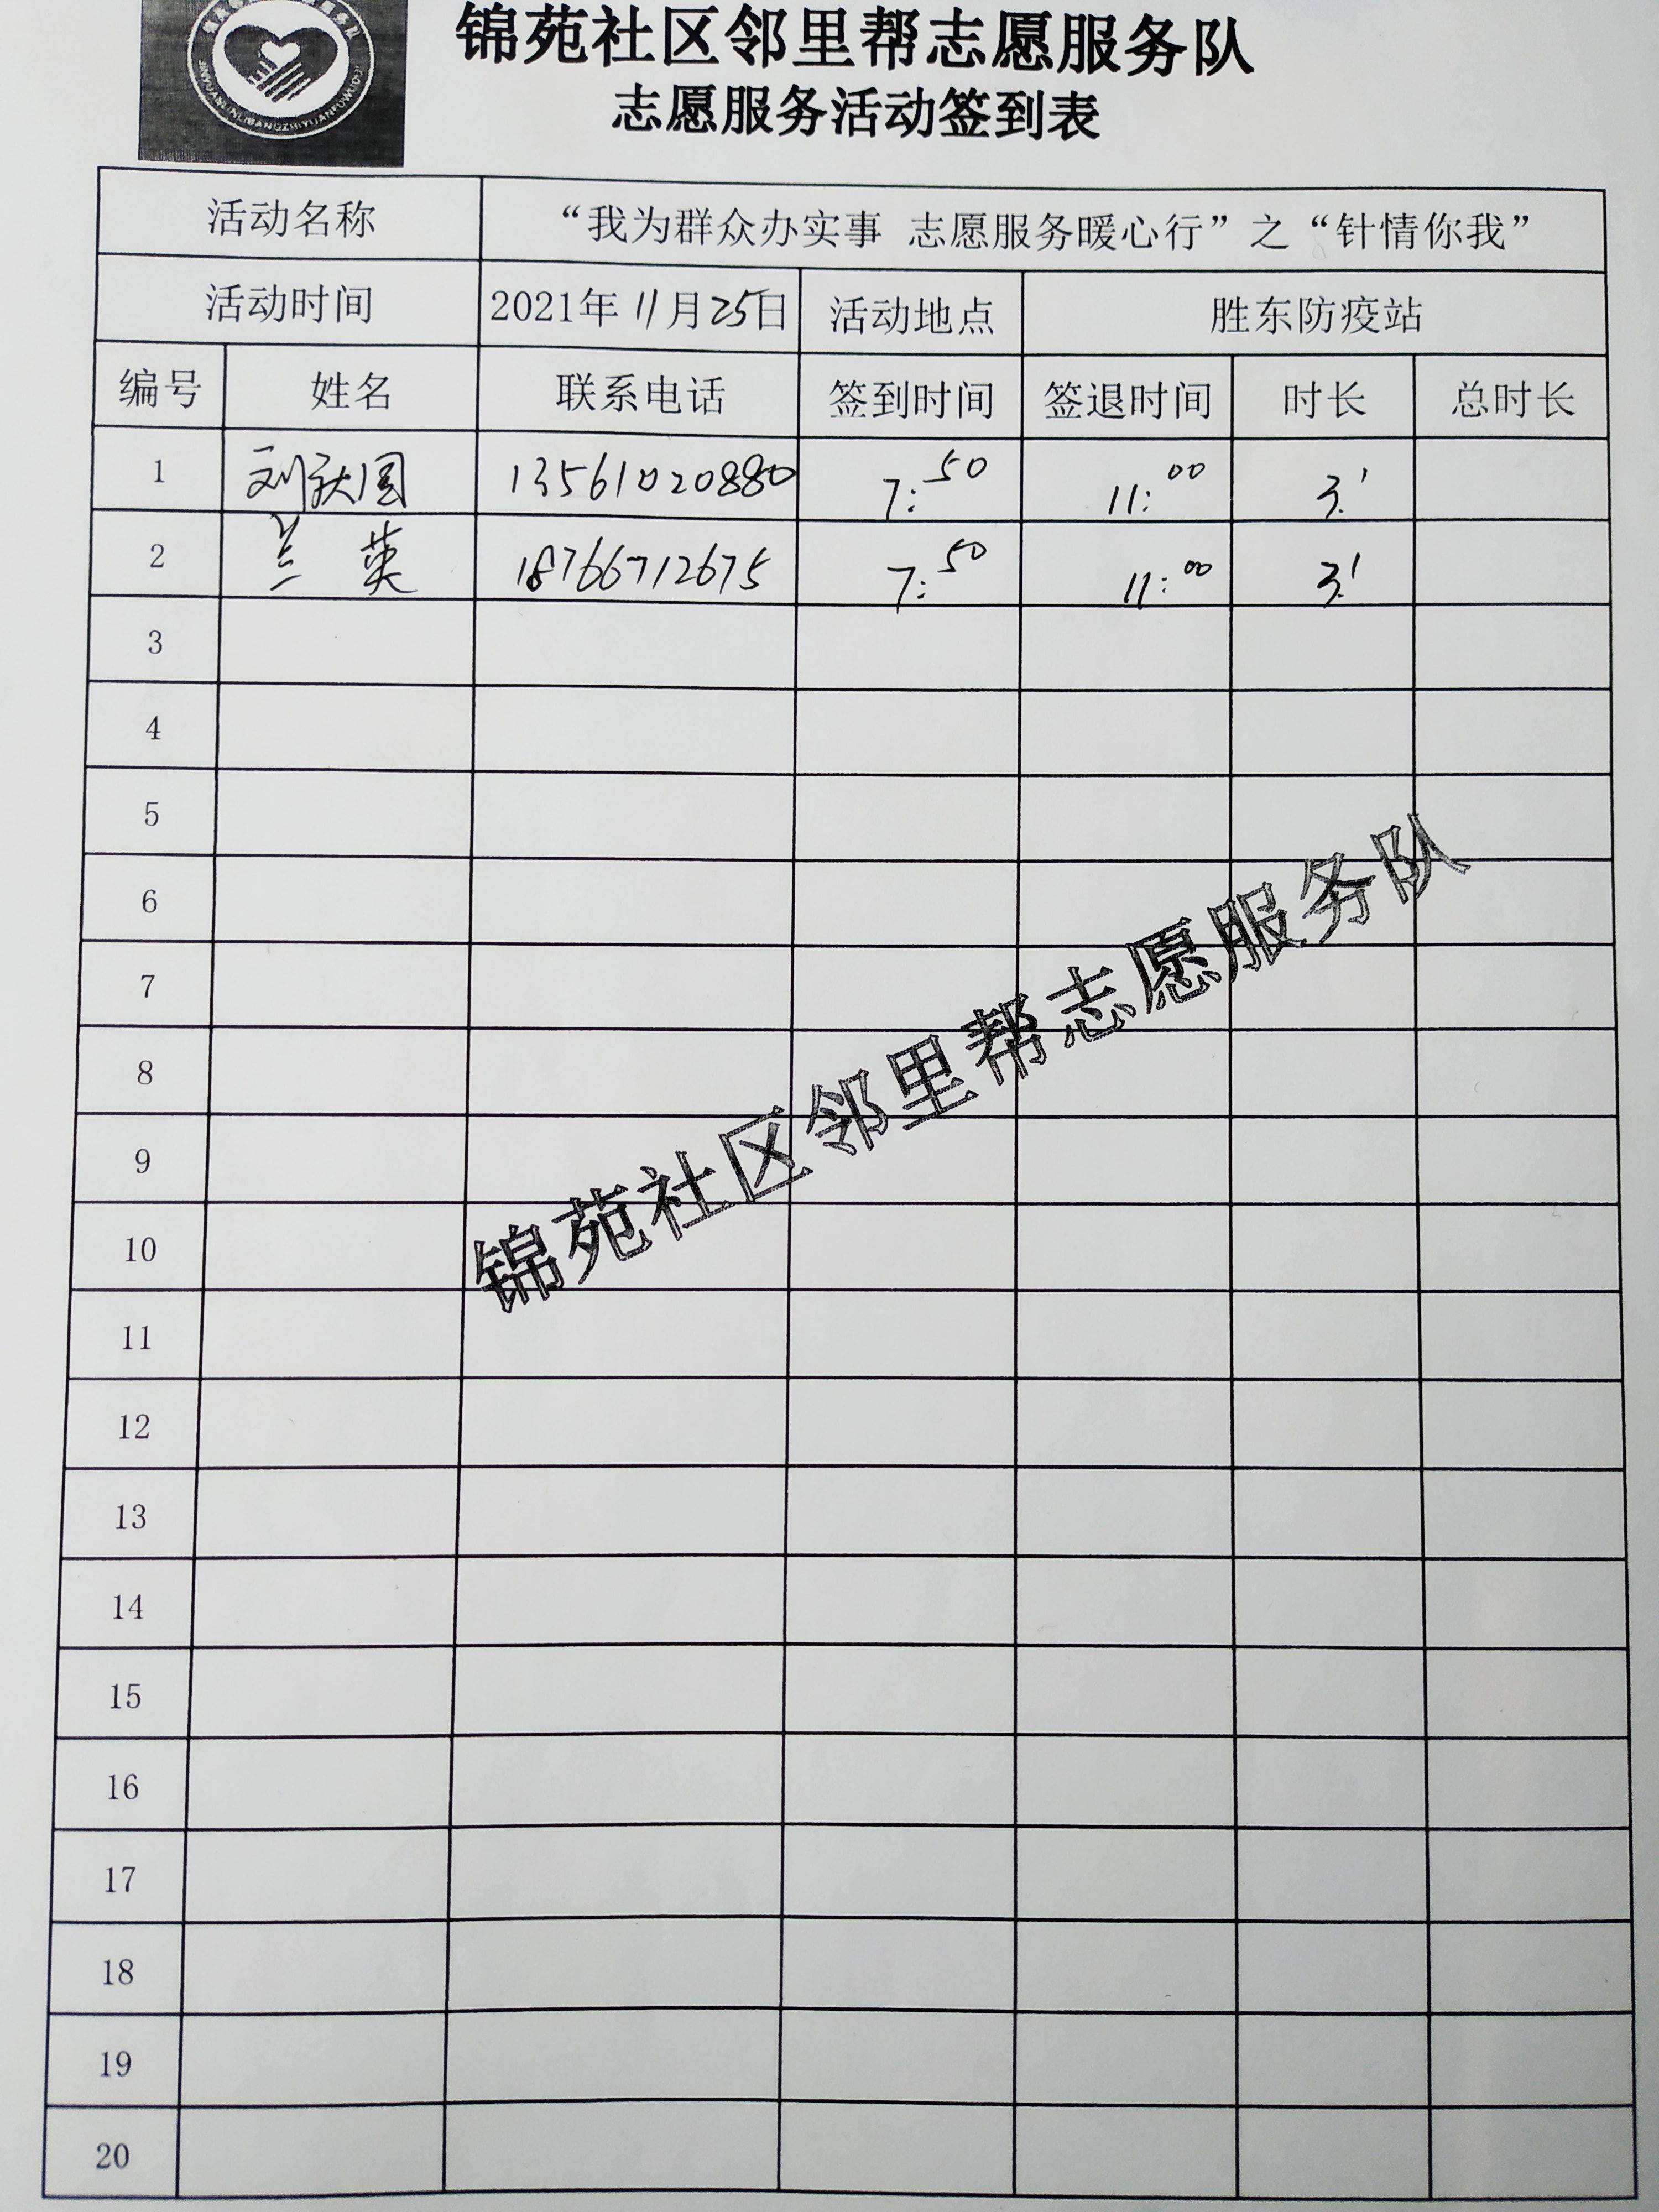 锦苑社区邻里帮志愿服务队
志愿服务活动签到表
JINYUANLINLIBANGZHIYUANFUWUDUI
活动名称 “我为群众办实事 志愿服务暖心行”之“针情你我”
活动时间 2021年 11月25日 活动地点 胜东防疫站
编号 姓名 联系电话 签到时间 签退时间 时长 总时长
1 刘跃国 13561020880 7:50 11:00 3'
2 兰英 18766712675 7:50 11:00 3'
3
4
5
6
7
8
9
10
11
12
13
14
15
16
17
18
19
20
锦苑社区邻里帮志愿服务队